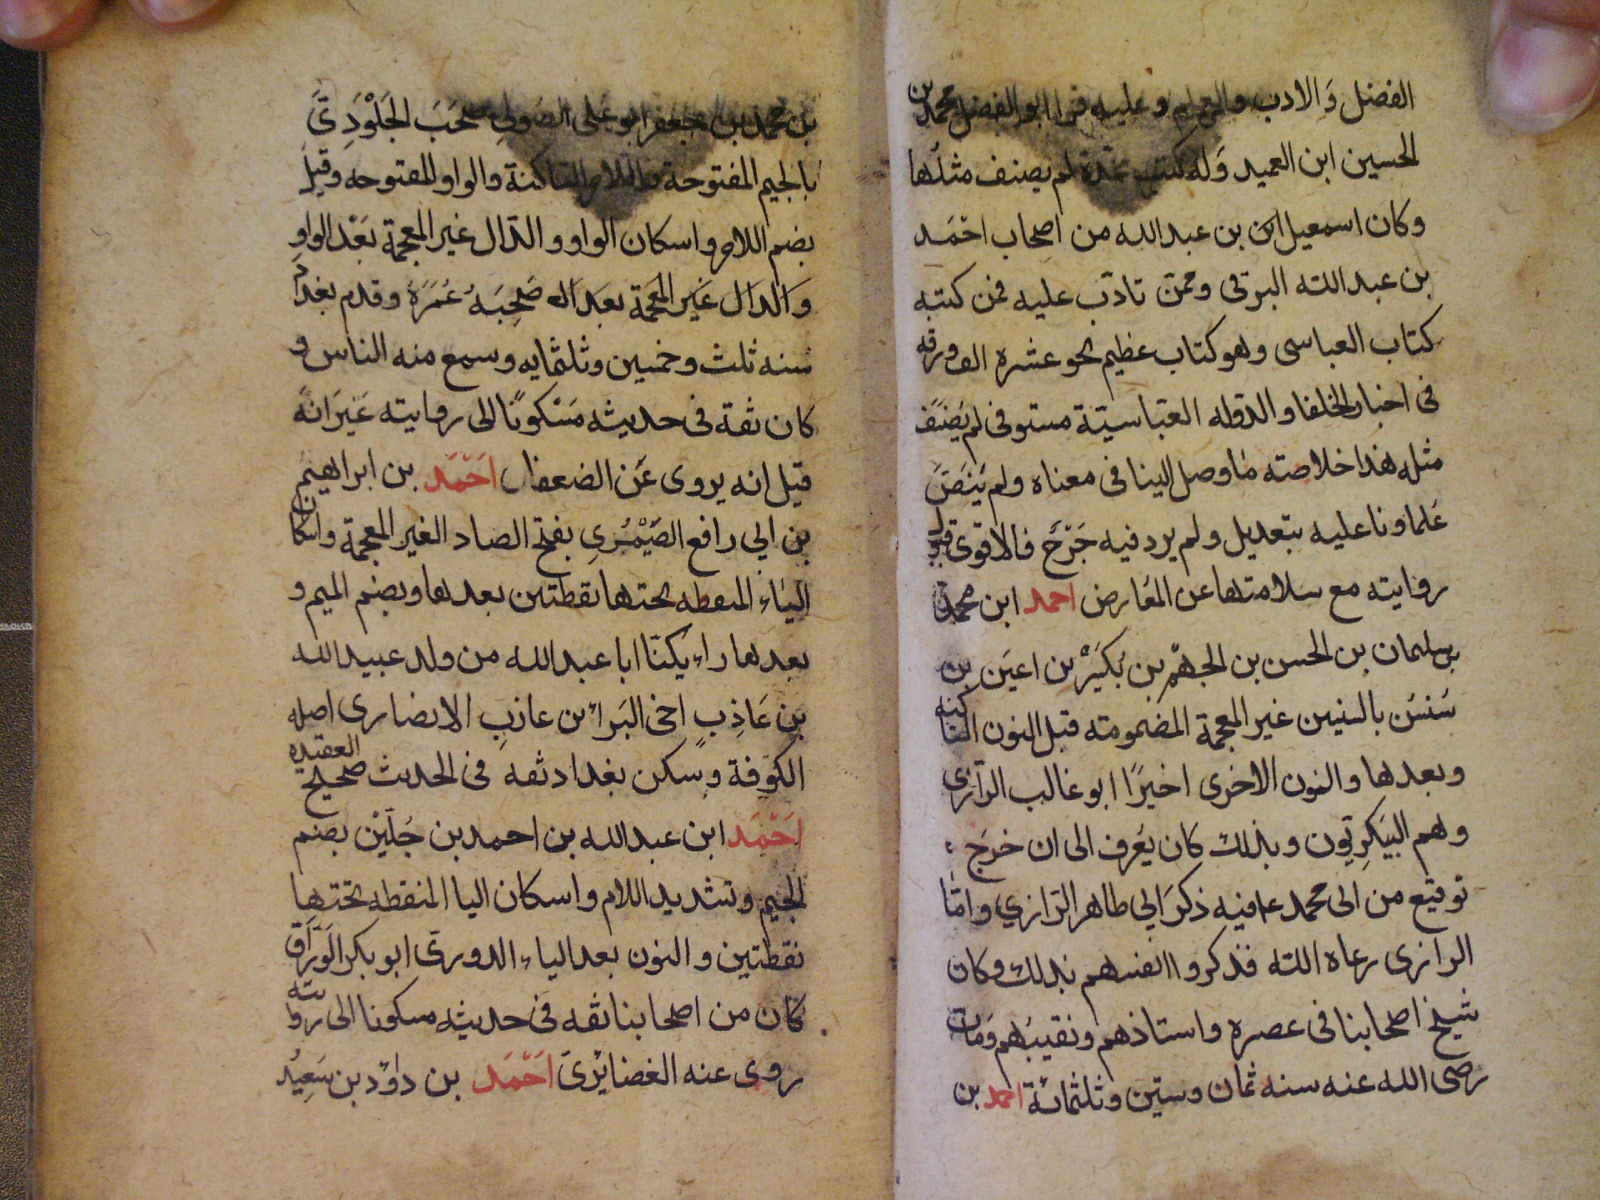 الفضل وَالادب والعلم وعليه قرا ابو الفضل محمد بن
الحسين ابن العميد وَله كتب عدة لم يصنف مثلها
وكان اسمعيل ابن بن عبدالله من اصحاب احمَد
بن عبدالله البرقى وممّن تادّب عليه فمن كتبه
كتاب العباسى وهو كتاب عظيم نحو عشرة الف ورقه
فى اخبار الخلفا والدوله العبّاسيّة مستوفى لم يصَنَّف
مثله هذا خلاصته ما وصل الينا فى معناه ولم يَنصّ
عُلماونا عليه بتعديل ولم يرد فيه جَرْح فالاقوى قبول
روايته مع سلامتها عن المُعارض احمد ابن محمد
بن سليمان بن الحسن بن الجهْم بن بُكَيْر بن اعيَن بن
سُنسُن بالسنين غير المعجمة المضمومته قبل النون الساكنه
وبعدها والنون الاخرى اخيرًا ابو غالب الرّازى
وهم البُكَرِيّون وبذلك كان يَعرف الى ان خرَج
توقيع من ابى محمد ع فيه ذكرَ ابى طاهر الرّازي وامّا
الرازى رعاه الله فذكروا انفسهم بذلك وكان
شيخ اصحابنا فى عصره واستاذهم ونقيبَهم وَمَات
رضى الله عنه سنه ثمان وستين وثلثمائة احمد بن
بن محمد بن جعفر ابو على الصَولى صَحَبَ الجَلْوَدِيَّ
بالجيم المفتوحة واللام الساكنة والواو المفتوحه وقيل
بضم اللام واسكان الواو والدّال غير المعجمة بعَد الواو
وَالدَال غَير المعجمة بعَداله صَحِبَهُ عُمَرَهُ وقدم بغداد
سنه ثلث وخمسين وثلثمايه وسمع منه الناس و
كان ثقة فى حديثه مَسْكونًا الى روايته غَيرَ انّه
قيل انه يروى عَن الضعفا احَمَد بن ابراهيم
بن ابي رافع الصَيْمُرِي بفتح الصاد الغير المعجمة واسكان
اليَاء المنقطه تحتها نقطتين بعدها وبضم الميم و
بعدها راء يُكنّا ابا عبدالله من ولد عبيدالله
بن عَاذِبٍ اخى البَراء بن عازبِ الانصارى اصله
الكوفة وسكن بغداد ثقه فى الحديث صحيح العقيده
احَمَد ابن عبدالله بن احمد بن جُلّيْن بضم
الجيم وتشديد اللام واسكان اليا المنقطه تحتها
نقطتين والنون بعد الياء الدورىّ ابو بكر الوَرّاق
كان من اصحابنا ثقه فى حديثه مسكونا الى روايته
روى عنه الغضايْرىّ احَمَد بن داوٗد بن سَعِيْد